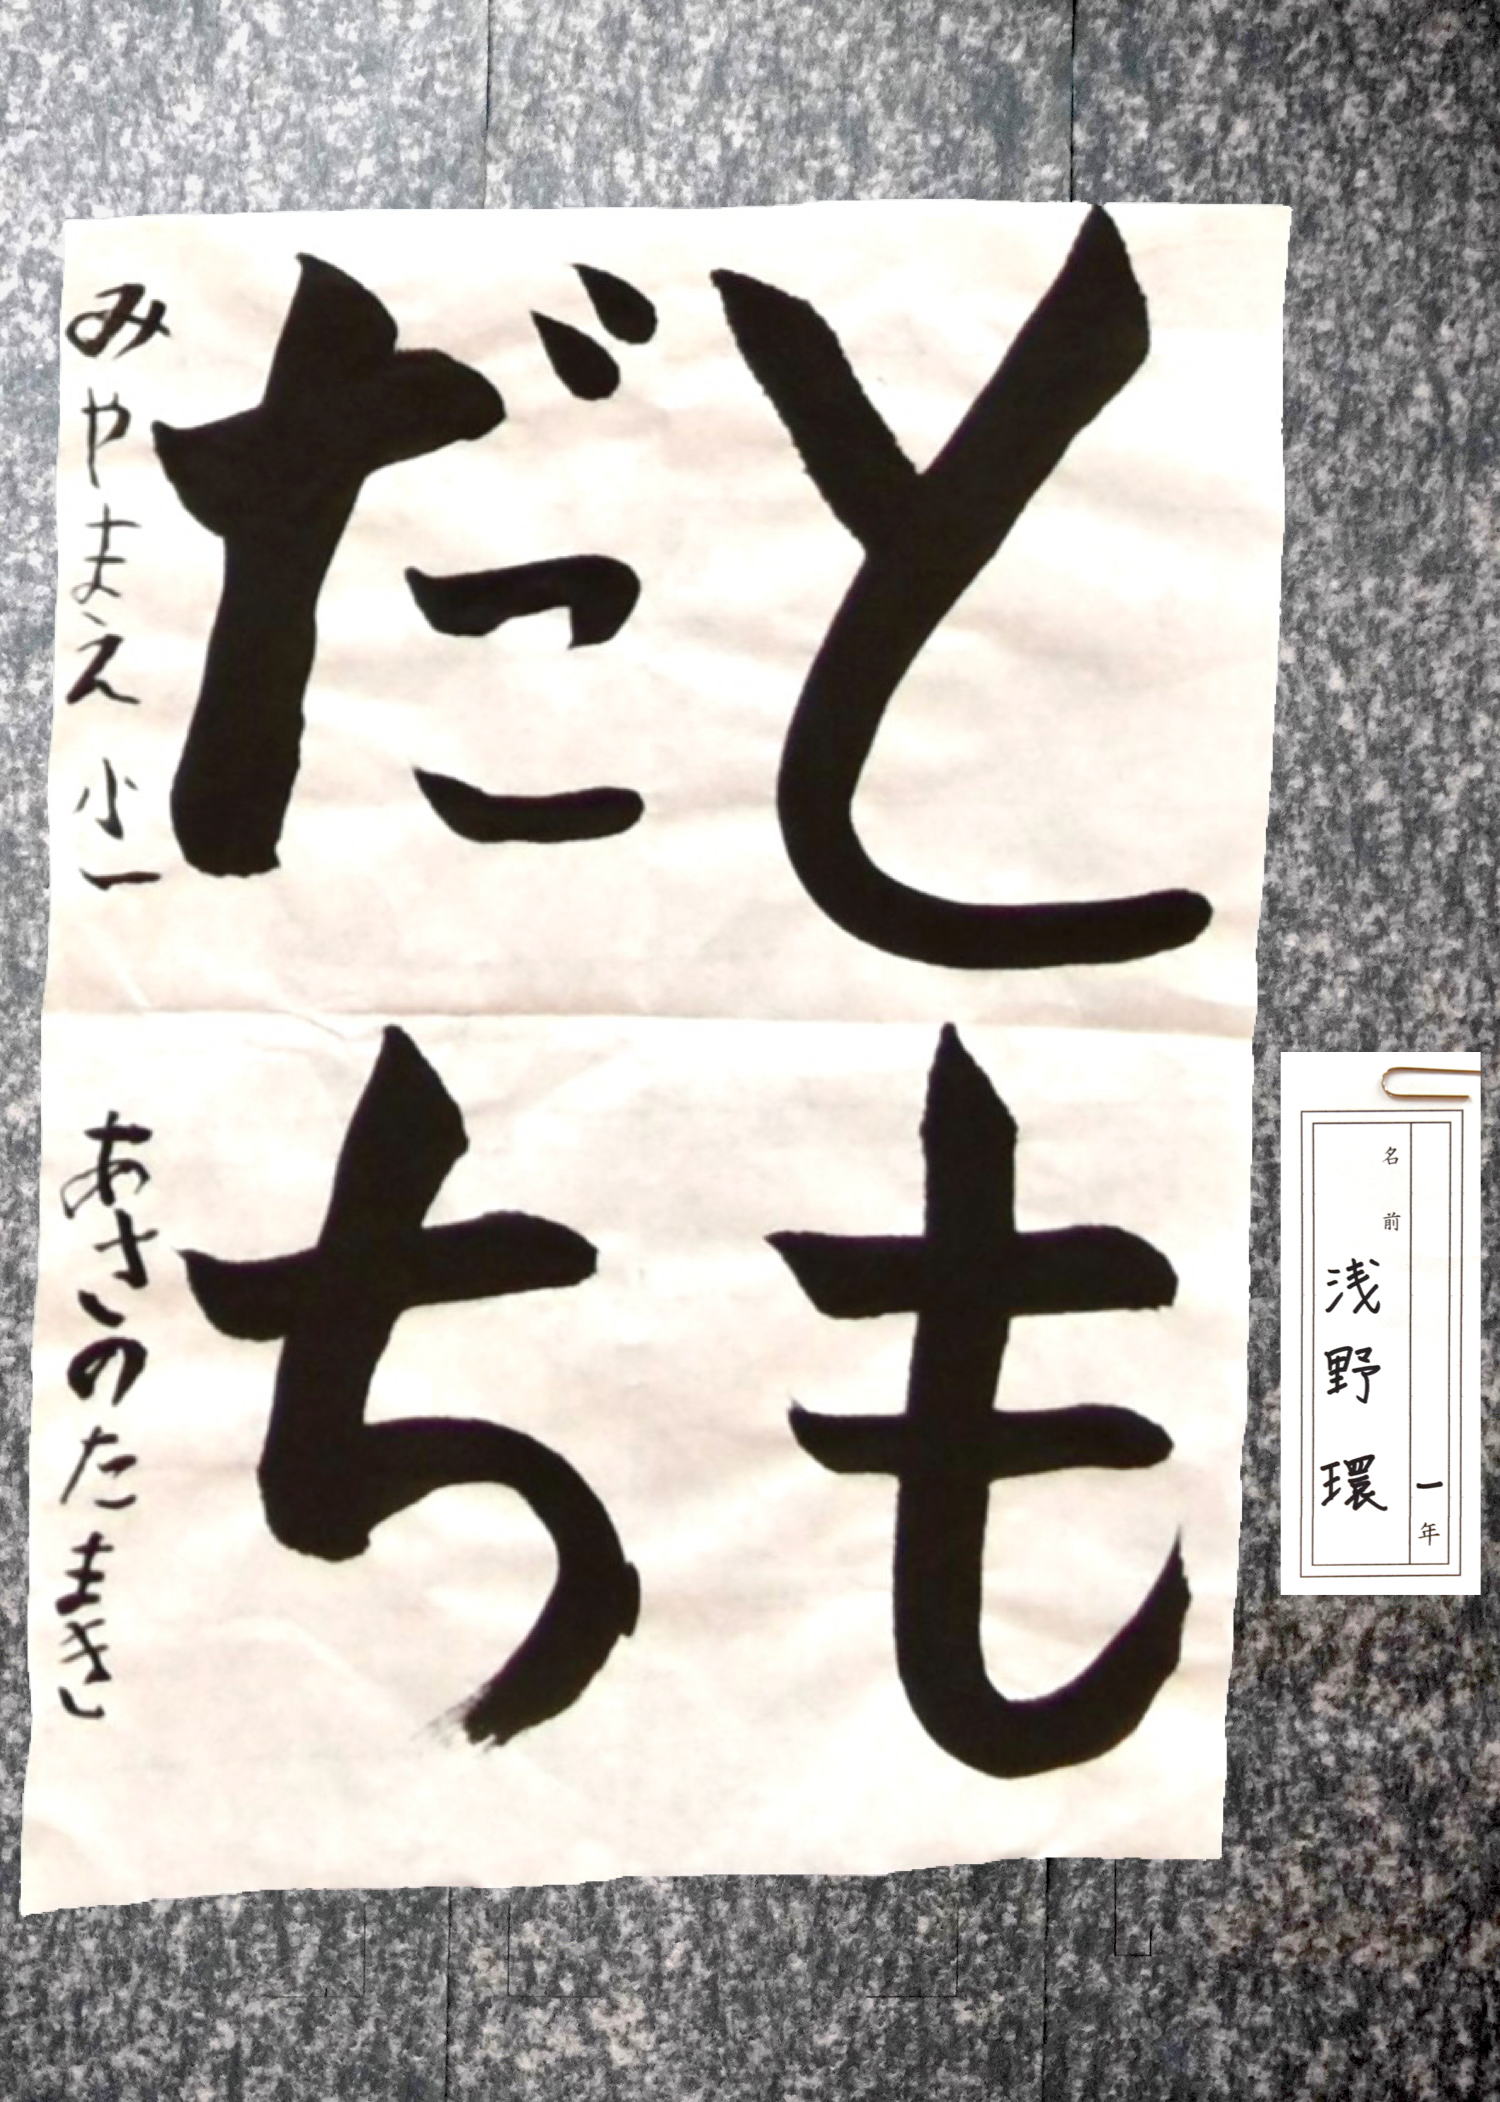 とも
だち
みやまえ 小一
あさのたまき
一年
名前
浅野 環